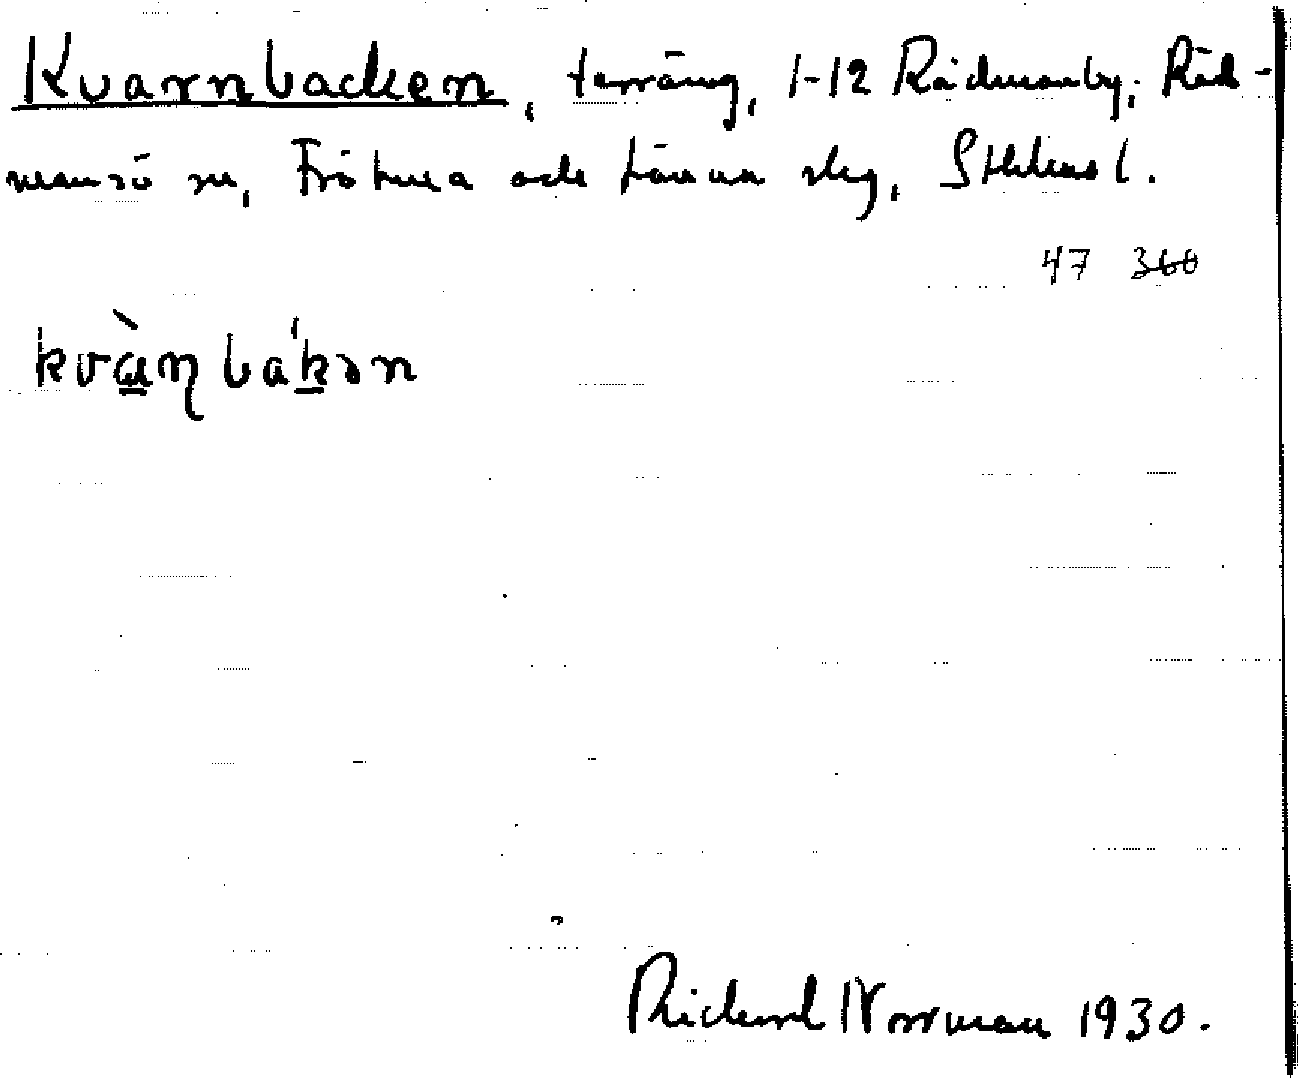 Kvarnbacken, terräng, 1-12 Rådmanby, Råd-
mansö sn, Frötuna och Länna slg, Sthlms l.
47 360
kvàɳbákən
Rickard Norrman 1930.